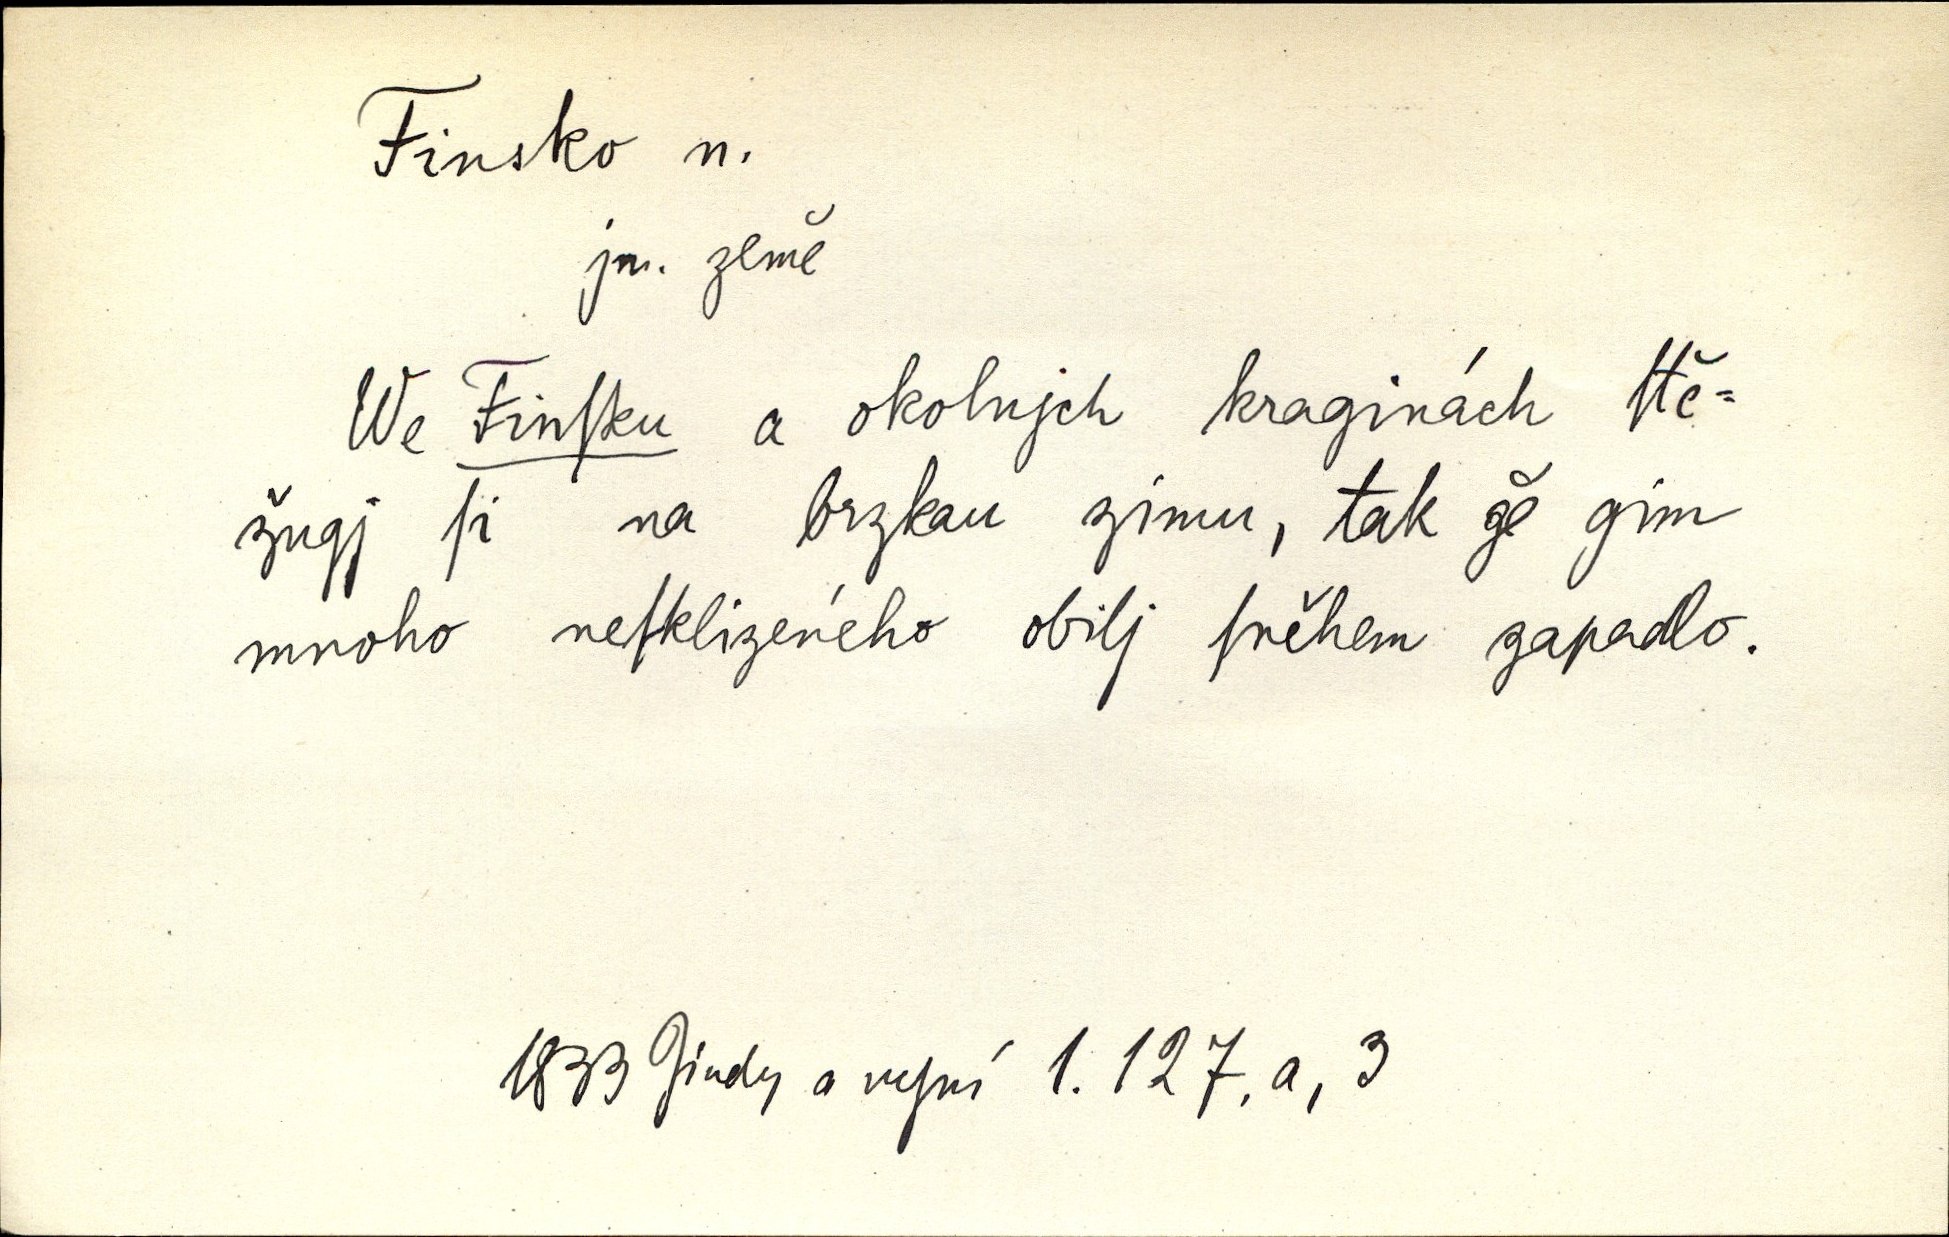 Finsko n.
jm. země
We Finſku a okolnjch kraginách ſtě=
žugj ſi na brzkau zimu, tak že gim
mnoho neſklizeného obilj ſněhem zapadlo.
1833 Jindy a nyní 1. 127, a, 3